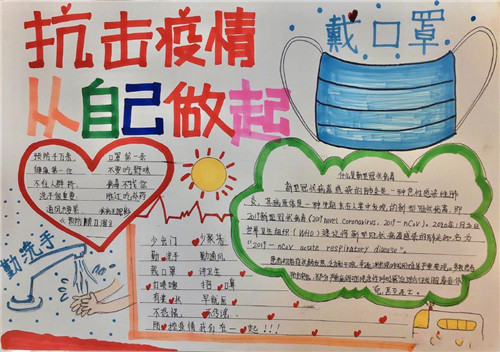 抗击疫情
从自己做起
戴口罩
预防千万条,
口罩第一条
健康第一位
不要吃野味
不往人群挤,
病毒不找您
洗手很重要
通风少聚集
《预防顺口溜》
什么是新型冠状病毒
新型冠状病毒感染的肺炎是一种急性感染性肺
炎,其病原体是一种先期未在人类中发现的新型冠状病毒,即
2019新型冠状病毒(2019 novel Coronavirus, 2019-nCoV)。2020年1月30日
世界卫生组织(WHO)建议将新型冠状病毒感染的肺炎命名为
"2019-nCoV acute respiratory disease"。
勤洗手
少出门 少聚集
勤洗手 勤通风
戴口罩 讲卫生
打喷嚏 捂口耳
有发烧 早就医
不恐慌, 不传谣
防控疫情我们在一起!!!